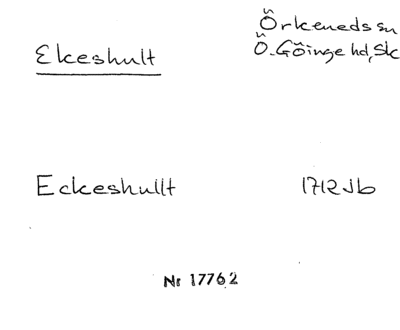 Örkeneds sn
Ekeshult
Ö. Göinge hd, Sk
Eckeshullt 1712 Jb
Nr 17762